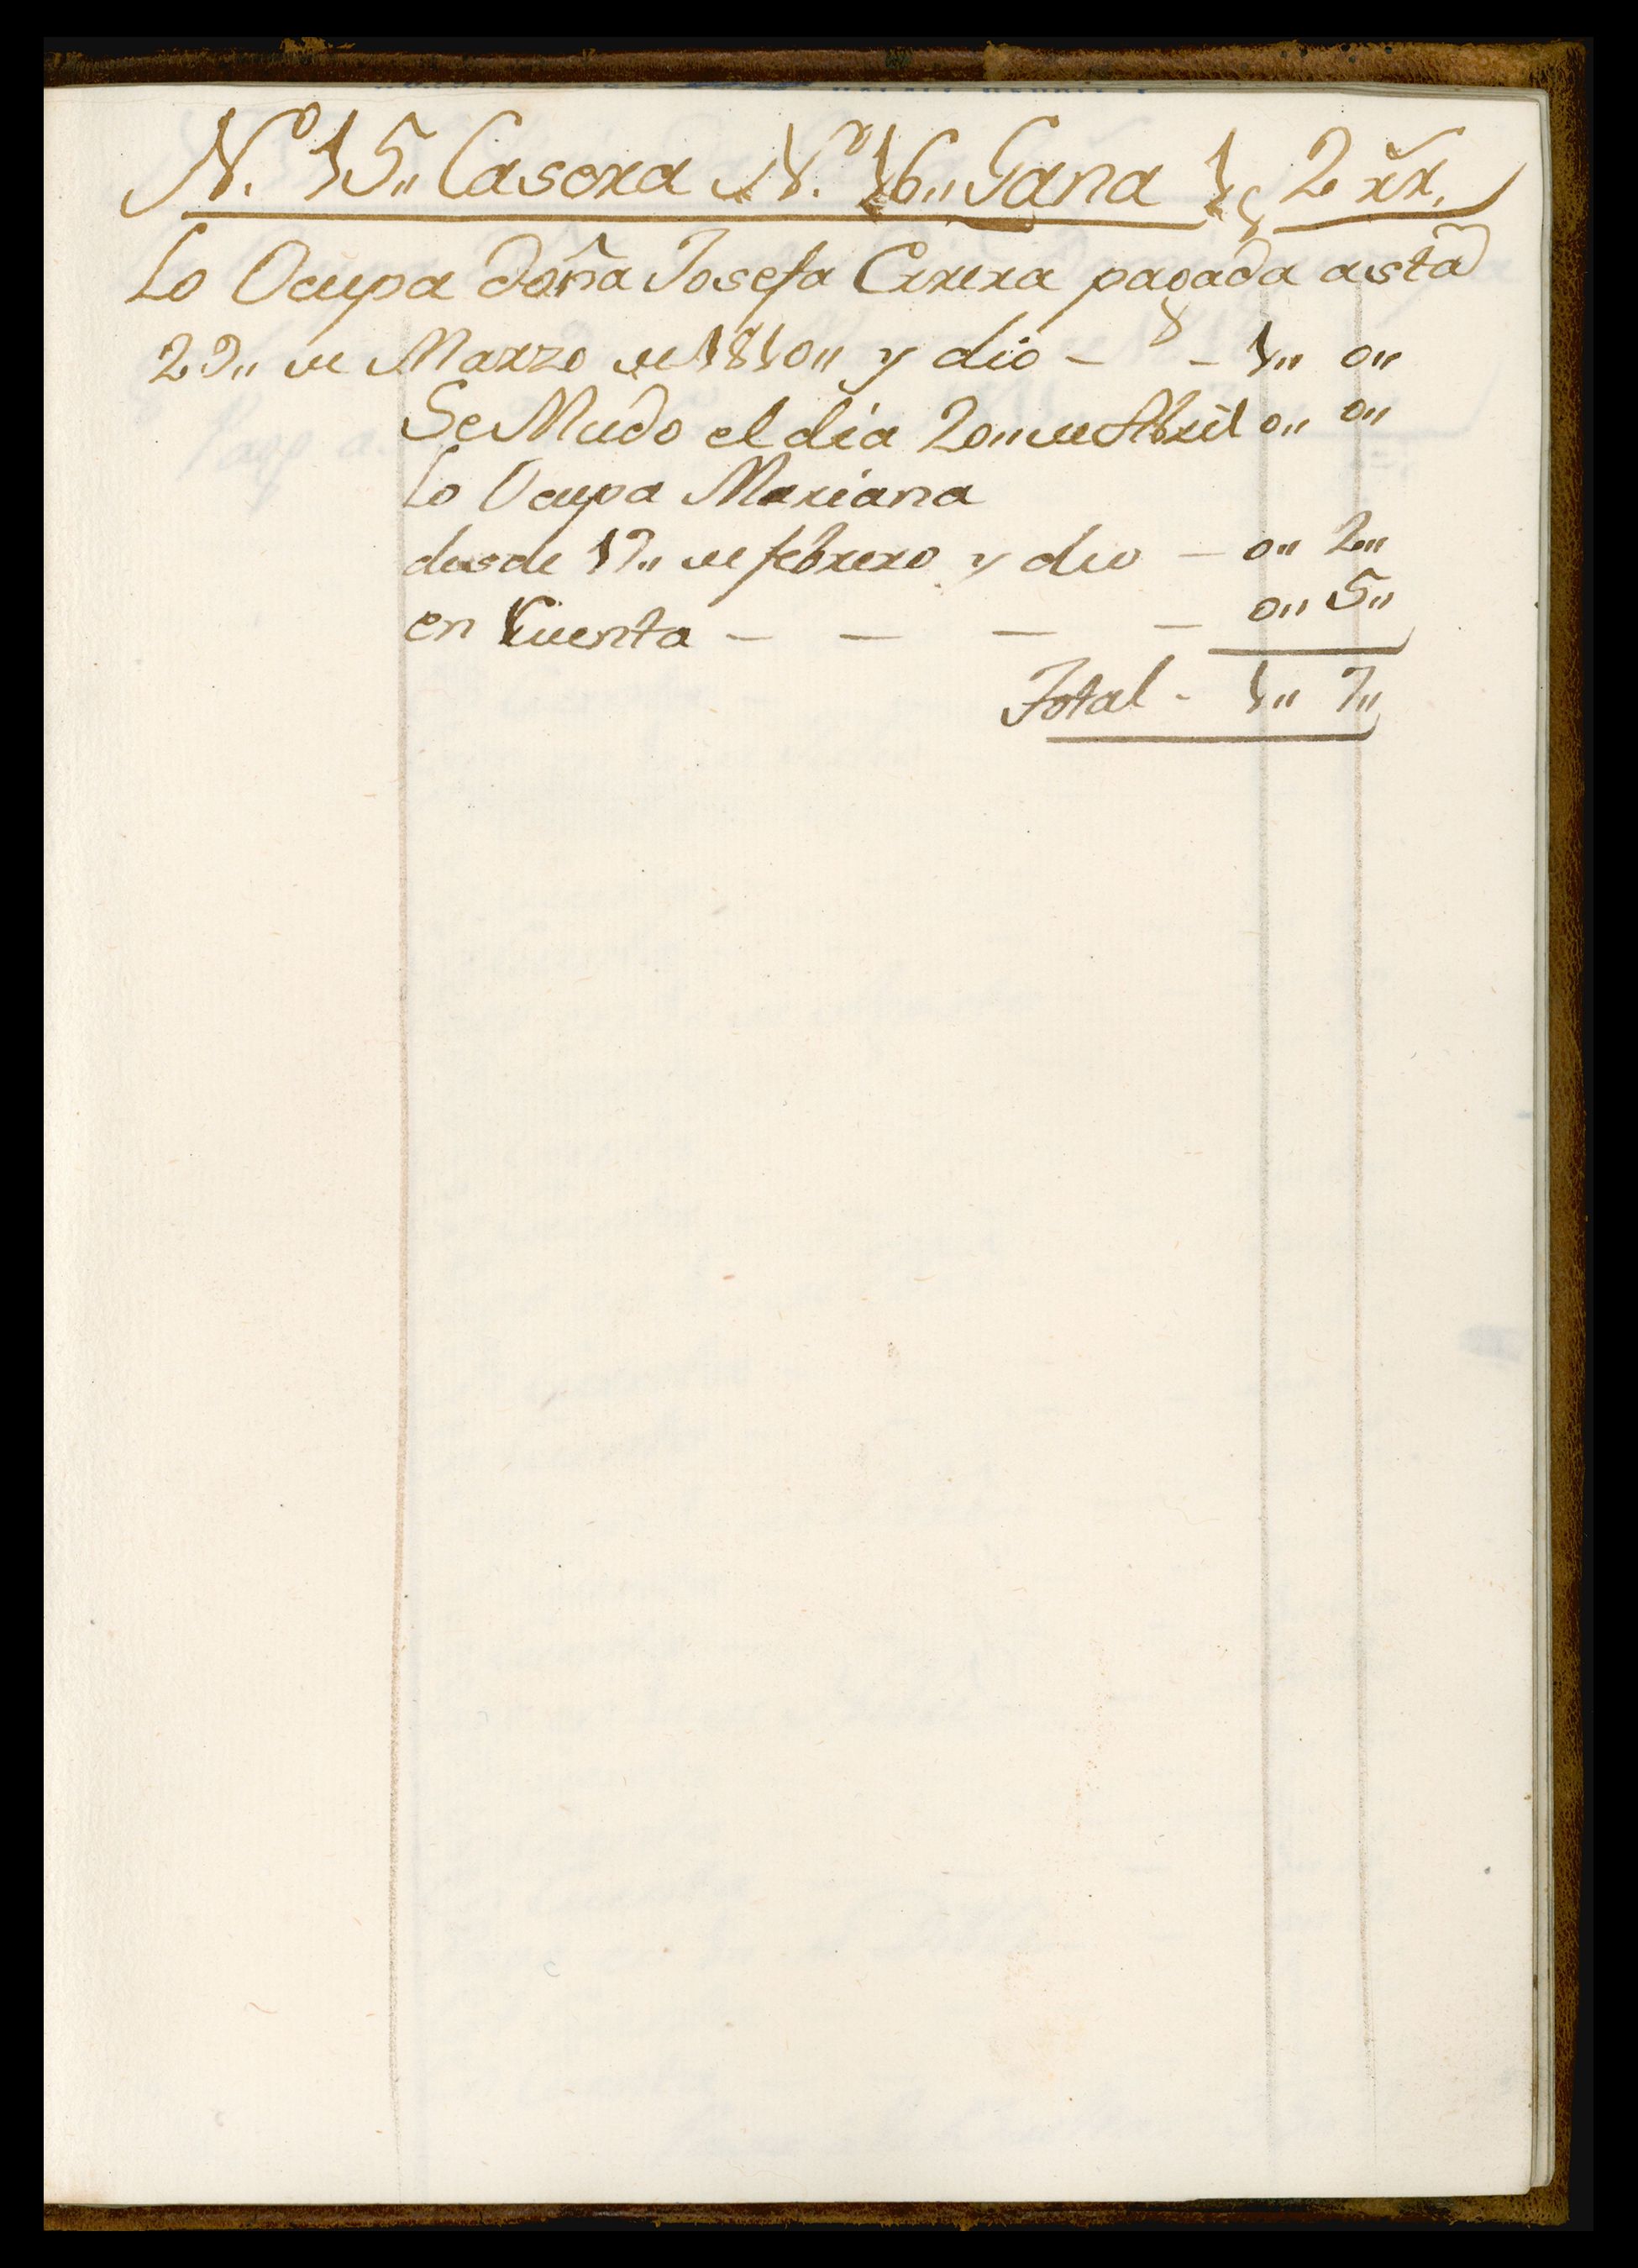 N.º 15„ Casera N.º 16„ Gana 1 p 2 rr.
Lo Ocupa doña Josefa Errera pagada asta
29„ de Marzo de 1810„ y dio – – 1„ 0„
Se Mudo el dia 20„ de Abril 0„ 0„
Lo Ocupa Mariana
desde 17„ de febrero y dio – 0„ 2„
en Cuenta – – – – 0„ 5„
Total - 1„ 7„